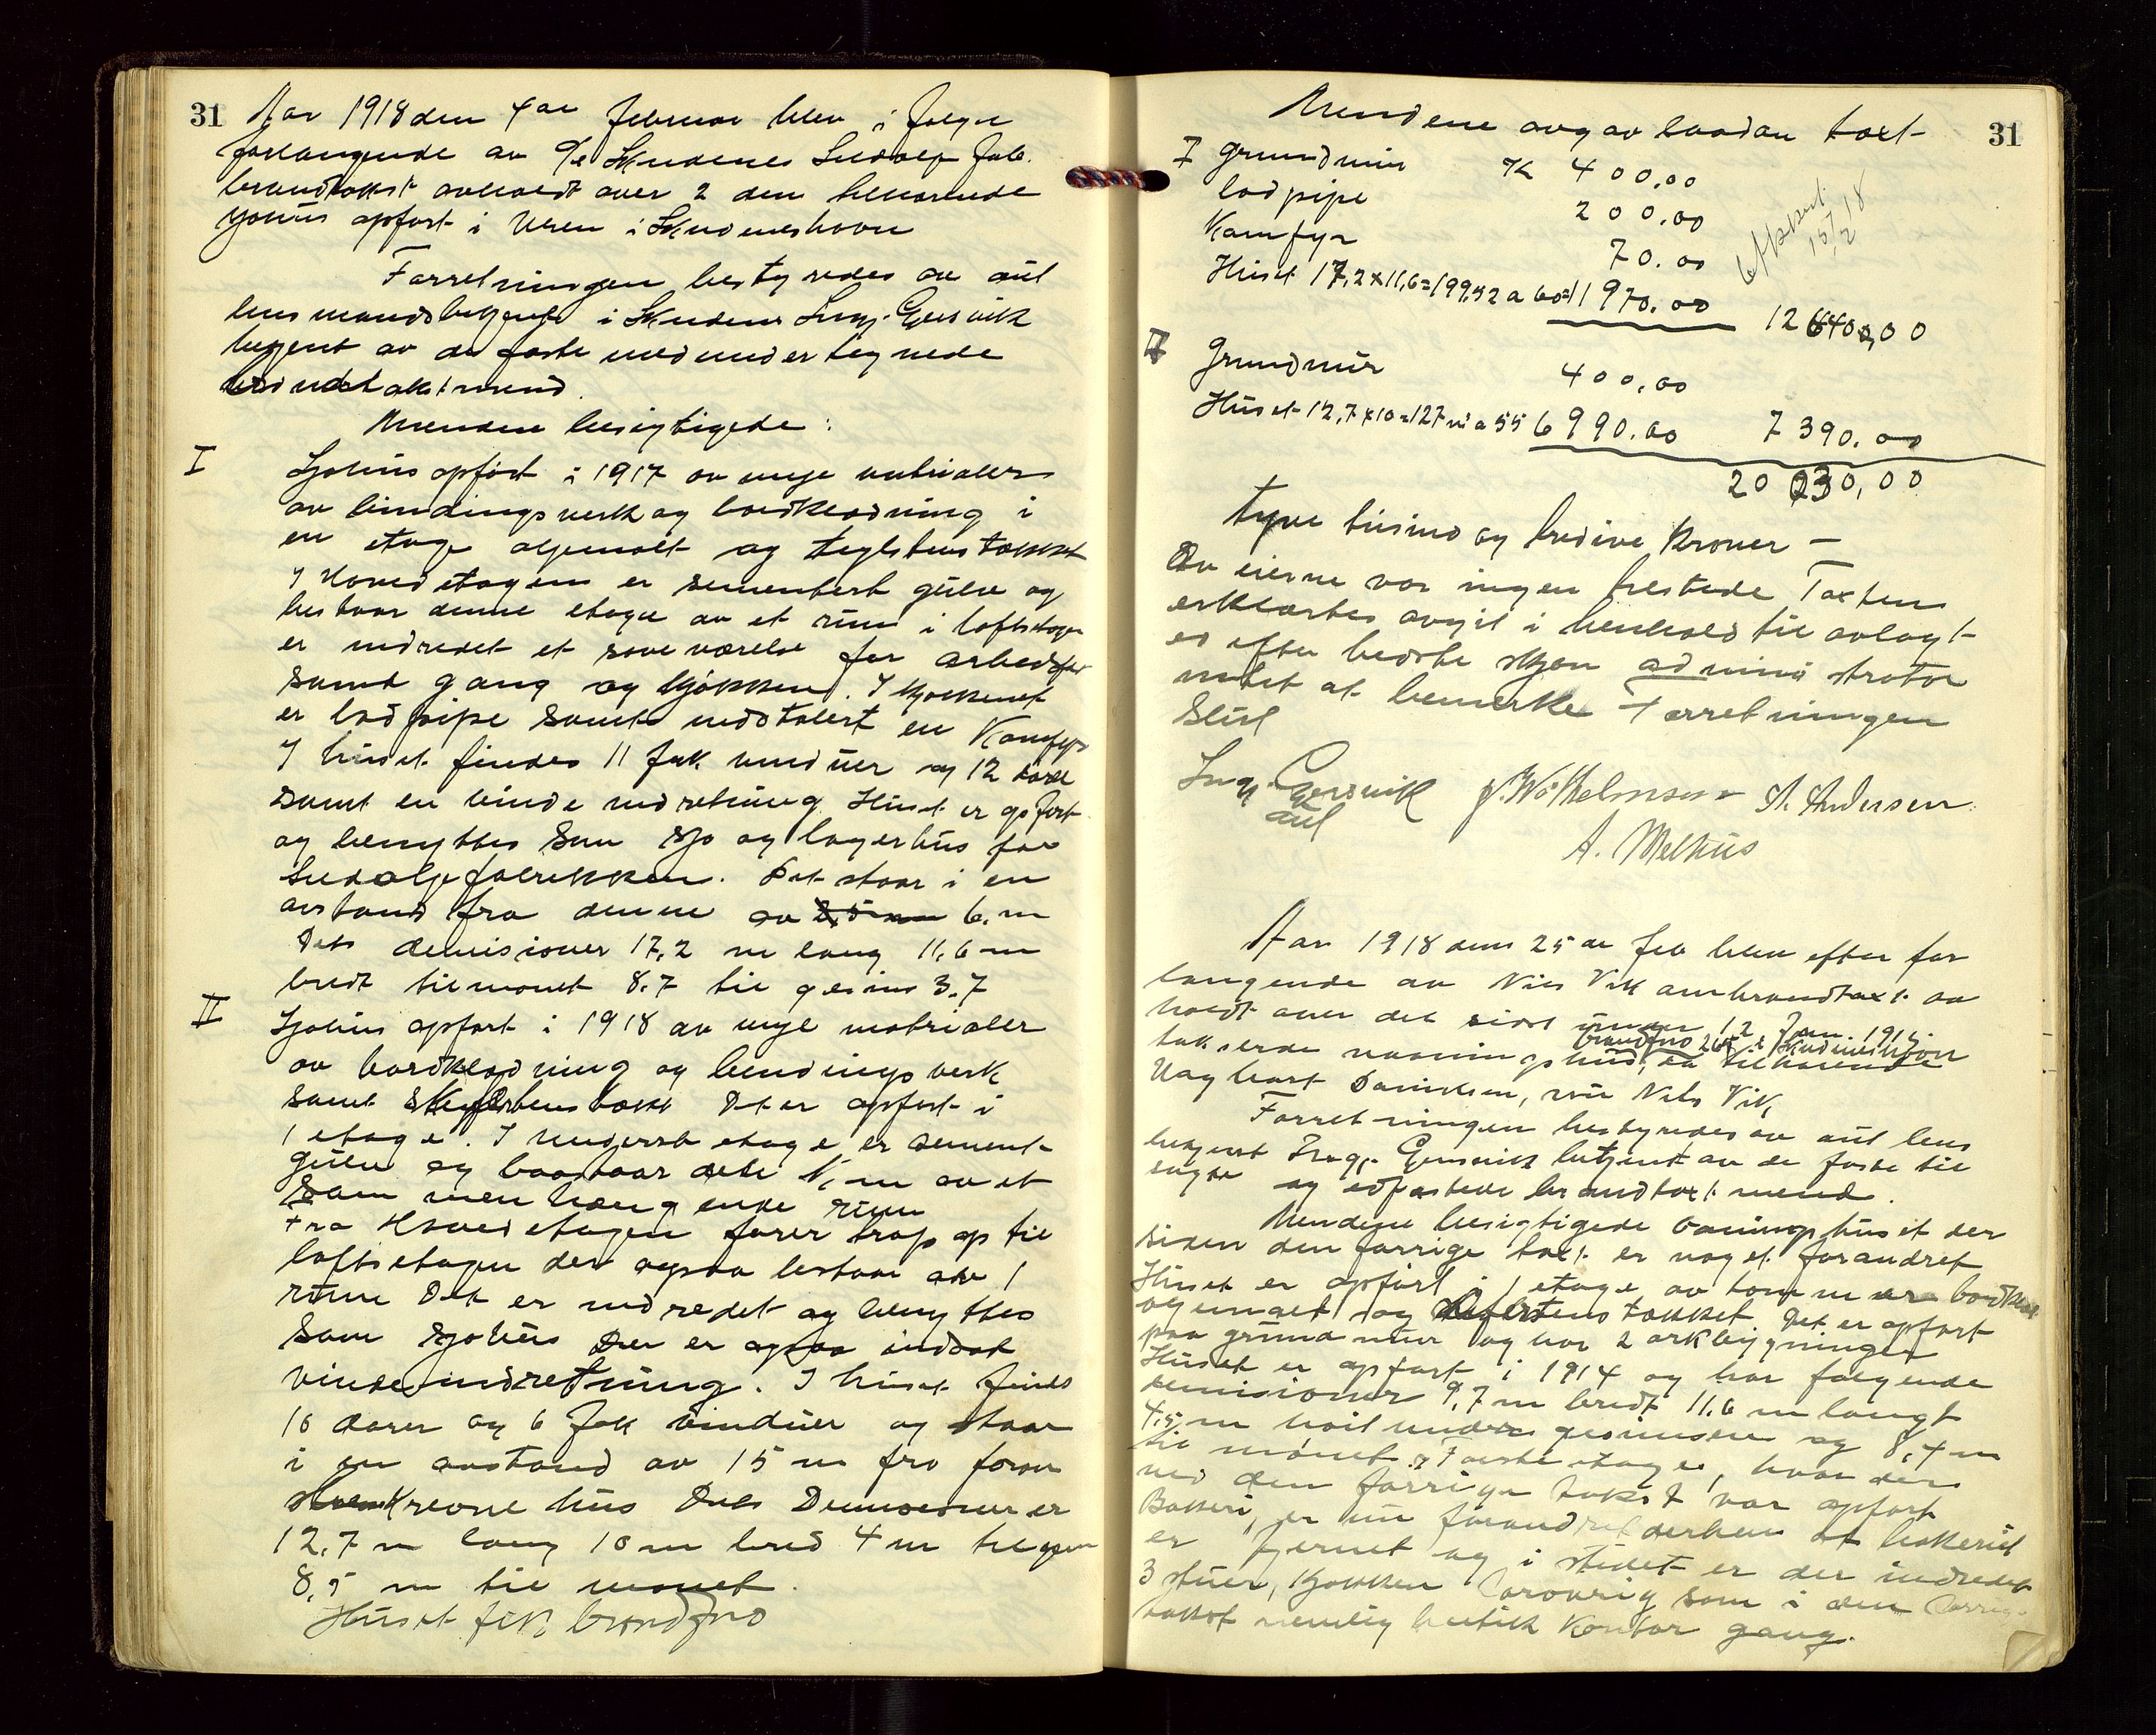 31
Aar 1918 den 4de februar blev i følge
forlangende av A/S Skudenes Sildolje fab.
brandtakst avholdt over 2 den tilhørende
sjøhus opført i Uren i Skudeneshavn
Forretningen bestyredes av aut
lensmandsbetjent i Skudenes Ingj. Gjersvik
betjent av de faste med undertegnede
brandtakstmænd.
Mændene besigtigede:
I
Sjøhus opført i 1917 av nye matrialer
av bindingsverk og bordklædning i
en etage oljemalt og teglstenstækket
I Hovedetagen er sementert gulv og
bestaar denne etage av et rum i loftsetagen
er indredet et soveværelse for arbeidsfolk
samt gang og kjøkken. I kjøkkenet
er lodpipe samt indstalert en Komfyr
I huset findes 11 fak vinduer og 12 døre
samt en vinde indretning. Huset er opført
og benyttes som sjø og lagerhus for
Sildoljefabrikken. Det staar i en
avstand fra denne av 6. m
Dets demisioner 17,2 m lang 11,6 m
bredt til mønet 8.7 til gesims 3.7
II
Sjøhus opført i 1918 av nye matrialer
av bordklædning og bindingsverk
samt Skiferstenstækt Det er opført i
1 etage. I nederste etage er sement-
gulv og bestaar dette av et
sammenhængende rum
Fra Hovedetagen fører trap op til
loftsetagen der ogsaa bestaar av 1
rum Det er indredet og benyttes
som sjøhus Der er ogsaa indsat
vindeindretning. I huset finds
10 dører og 6 fak vinduer og staar
i en avstand av 15 m fra foran
skrevne hus Dets Demisioner er
12.7 m lang 10 m bred 4 m til gesims
8,5 m til mønet.
Huset fik brandfno
31
Mændene avgav saadan taxt
I grundmur Kr 400,00
lodpipe 200,00
Komfyr 70.00
Huset 17,2 x 11,6 = 199,52 a 60 = 11970.00 12640,00
15/2 18
II Grundmur 400,00
Huset 12,7 x 10 = 127 m a 55 6990.00 7390.00
20 030,00
tyve tusind og tredive kroner —
Av eierne var ingen tilstede Taxten
erklærtes avgit i henhold til avlagt
ed efter bedste skjøn administrator
intet at bemerke Forretningen
slut
Ingj. Gjersvik
aut
J. Wilhelmsen A. Andersen
A. Melhus
Aar 1918 den 25de feb blev efter for
langende av Nils Vik ombrandtaxt av
holdt over det sidst under 12 Jan. 1915
brandfno 265 i Skudeneshavn
takserede vaaningshus, tilhørende
Hagbart Danielsen, nu Nils Vik,
Forretningen bestyredes av aut lens
betjent Ingj. Gjersvik betjent av de faste til
sagte og edfæstede brandtaxtmænd.
Mændene besigtigede vaaningshuset der
siden den forrige taxt er noget forandret
Huset er opført i 1 etage av tømmer bordklæd
oljemalt og skiferstenstækket. Det er opført
paa grundmur og har 2 arkbygninger
Huset er opført i 1914 og har følgende
demisioner 9,7 m bredt 11,6 m langt
4,5 m høit under gesimsen og 8,4 m
til mønet. I første etage, hvor der
ved den forrige takst var opført
Bakeri, er nu forandret derhen at bakeriet
er fjernet og i stedet er der indredet
3 stuer, kjøkken forøvrig som i den forrige
takst nemlig butik Kontor gang.